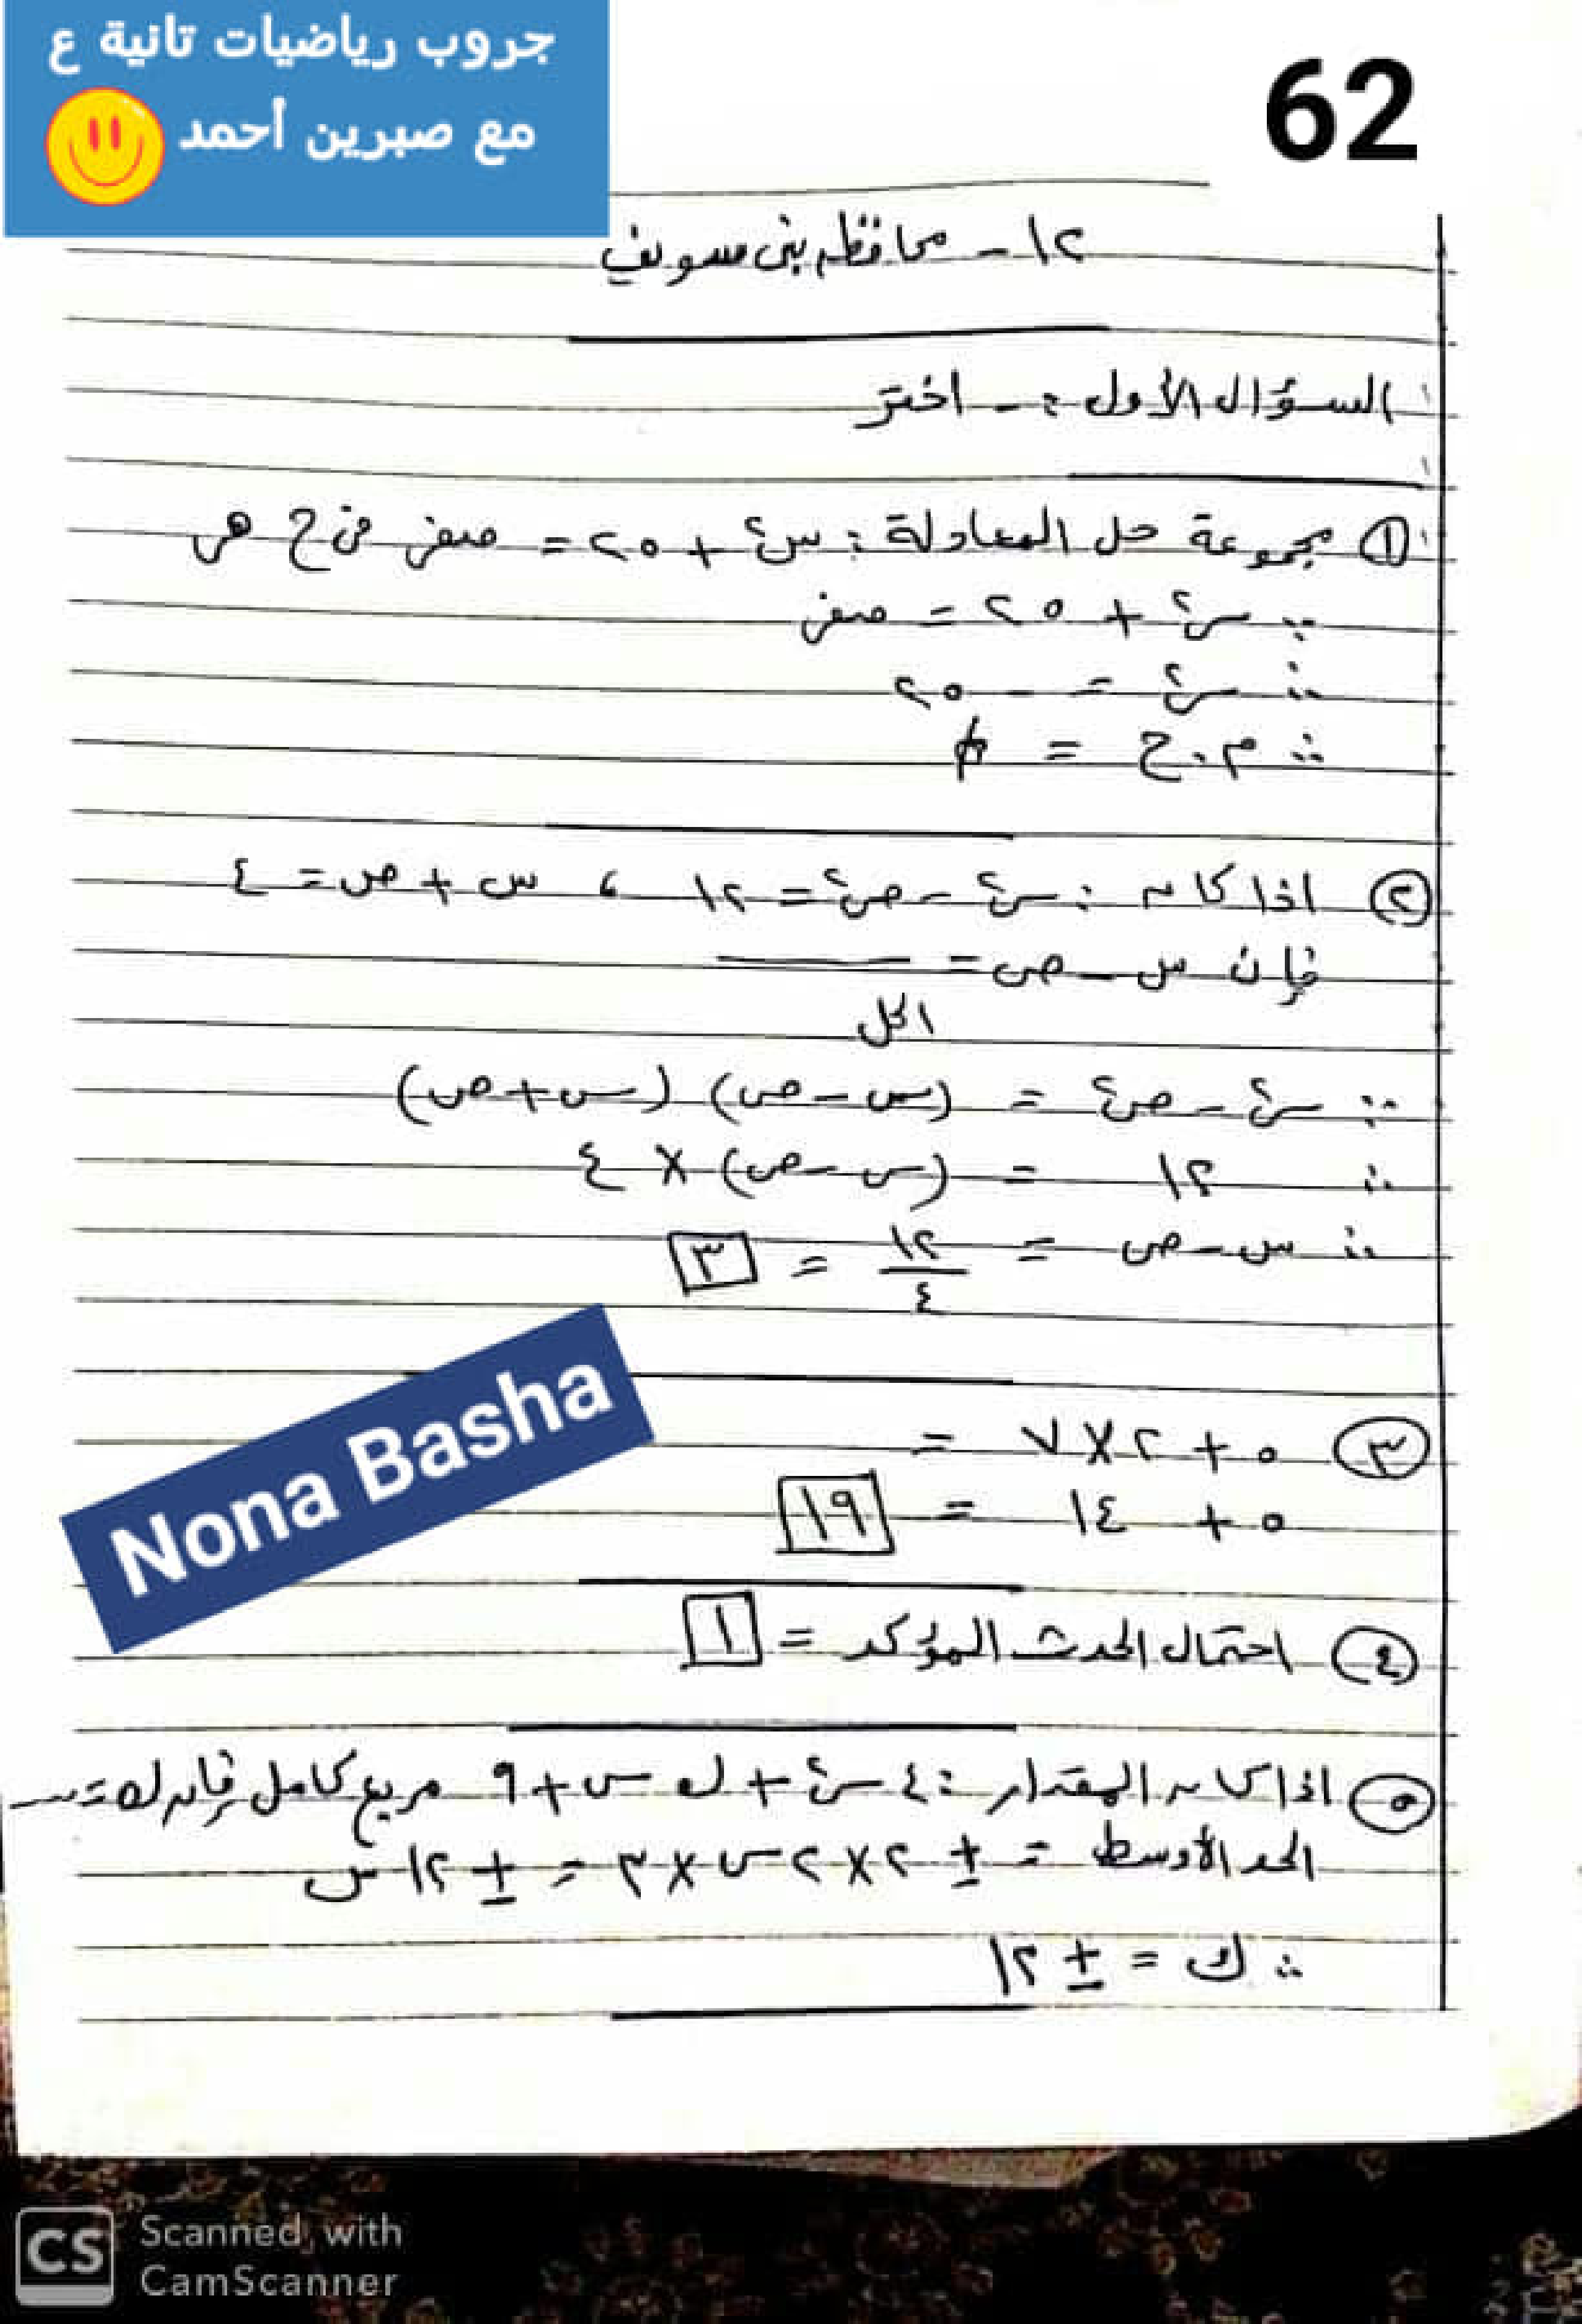 جروب رياضيات تانية ع
مع صبرين أحمد
62
١٢ - محافظة بنى سويف
السؤال الأول :- اختر
① مجموعة حل المعادلة : س٢ + ٢٥ = صفر فى ح هى
∵ س٢ + ٢٥ = صفر
∴ س٢ = - ٢٥
∴ م.ح = ϕ
② اذا كان : س٢ - ص٢ = ١٢ ، س + ص = ٤
فإن س - ص = ــــــ
الحل
∵ س٢ - ص٢ = (س - ص) (س + ص)
∴ ١٢ = (س - ص) × ٤
∴ س - ص = ١٢/٤ = ٣
③ ٥ + ٢ × ٧ =
٥ + ١٤ = ١٩
④ احتمال الحدث المؤكد = ١
⑤ اذا كان المقدار : ٤ س٢ + ك س + ٩ مربع كامل فإن ك = ــ
الحد الأوسط = ± ٢ × ٢ س × ٣ = ± ١٢ س
∴ ك = ± ١٢
Nona Basha
CS Scanned with
CamScanner